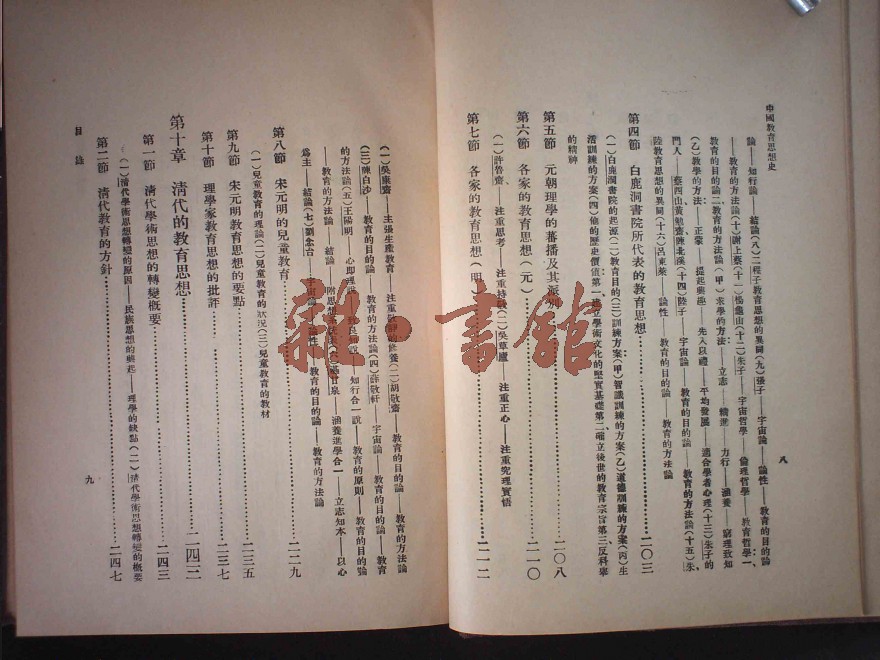 中國教育思想史
八
論——知行論——結論(八)二程子教育思想的異同(九)張子——宇宙論——論性——教育的目的論
——教育的方法論(十)謝上蔡(十一)楊龜山(十二)朱子——宇宙哲學——倫理哲學——教育哲學一、
教育的目的論二、教育的方法論(甲)求學的方法——立志——精進——力行——涵養——窮理致知
(乙)教學的方法——正蒙——提起興趣——先入以禮——平均發展——適合學者心理(十三)朱子的
門人——蔡西山黃勉齋陳北溪(十四)陸子——宇宙論——教育的目的論——教育的方法論(十五)朱
陸教育思想的異同(十六)呂東萊——論性——教育的目的論——教育的方法論
第四節 白鹿洞書院所代表的教育思想…………二〇三
(一)白鹿洞書院的起源(二)教育目的(三)訓練方案(甲)智識訓練的方案(乙)道德訓練的方案(丙)生
活訓練的方案(四)他的歷史價值第一建立學術文化的堅實基礎第二確立後世的教育宗旨第三反科舉
的精神
第五節 元朝理學的蕃播及其派別…………二〇八
第六節 各家的教育思想(元)…………二一〇
(一)許魯齋——注重思考——注重持敬(二)吳草廬——注重正心——注重究理實悟
第七節 各家的教育思想(明)…………二一二
(一)吳康齋——主張生產教育——注重的修養(二)胡敬齋——教育的目的論——教育的方法論
(三)陳白沙——教育的目的論——教育的方法論(四)薛敬軒——宇宙論——教育的目的論——教育
的方法論(五)王陽明——心即理說——良知說——知行合一說——教育的原則——教育的目的論
——教育的方法論——結論——附思想系統表(六)湛甘泉——涵養進學合一——立志知本——以心
為主——結論(七)劉念台——宇宙論——論性——教育的目的論——教育的方法論
第八節 宋元明的兒童教育…………二二九
(一)兒童教育的理論(二)兒童教育的狀況(三)兒童教育的教材
第九節 宋元明教育思想的要點…………二三五
第十節 理學家教育思想的批評…………二三七
第十章 清代的教育思想…………二四三
第一節 清代學術思想的轉變概要…………二四三
(一)清代學術思想轉變的原因——民族思想的興起——理學的缺點(二)清代學術思想轉變的概要
第二節 清代教育的方針…………二四七
目錄
九
雜一書館